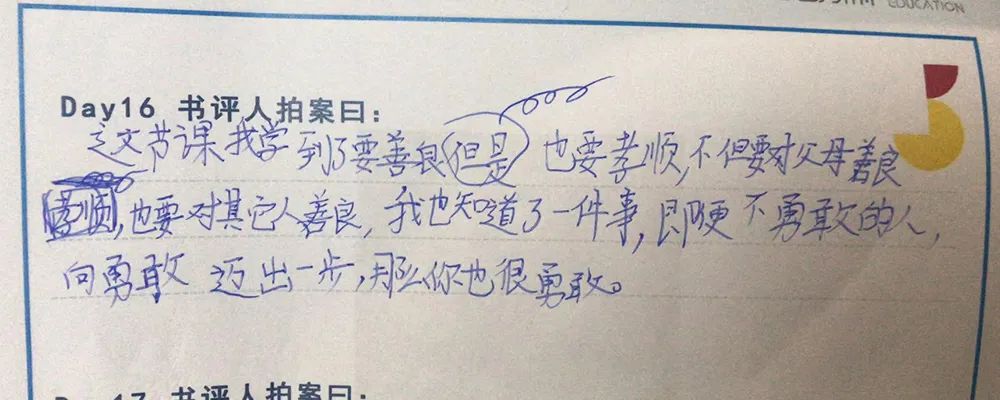 EDUCATION
Day16 书评人拍案曰:
这文节课我学到了要善良也要孝顺,不但要对父母善良
孝顺,也要对其它人善良,我也知道了一件事,即便不勇敢的人,
向勇敢迈出一步,那么你也很勇敢。
Day17 书评人拍案曰: